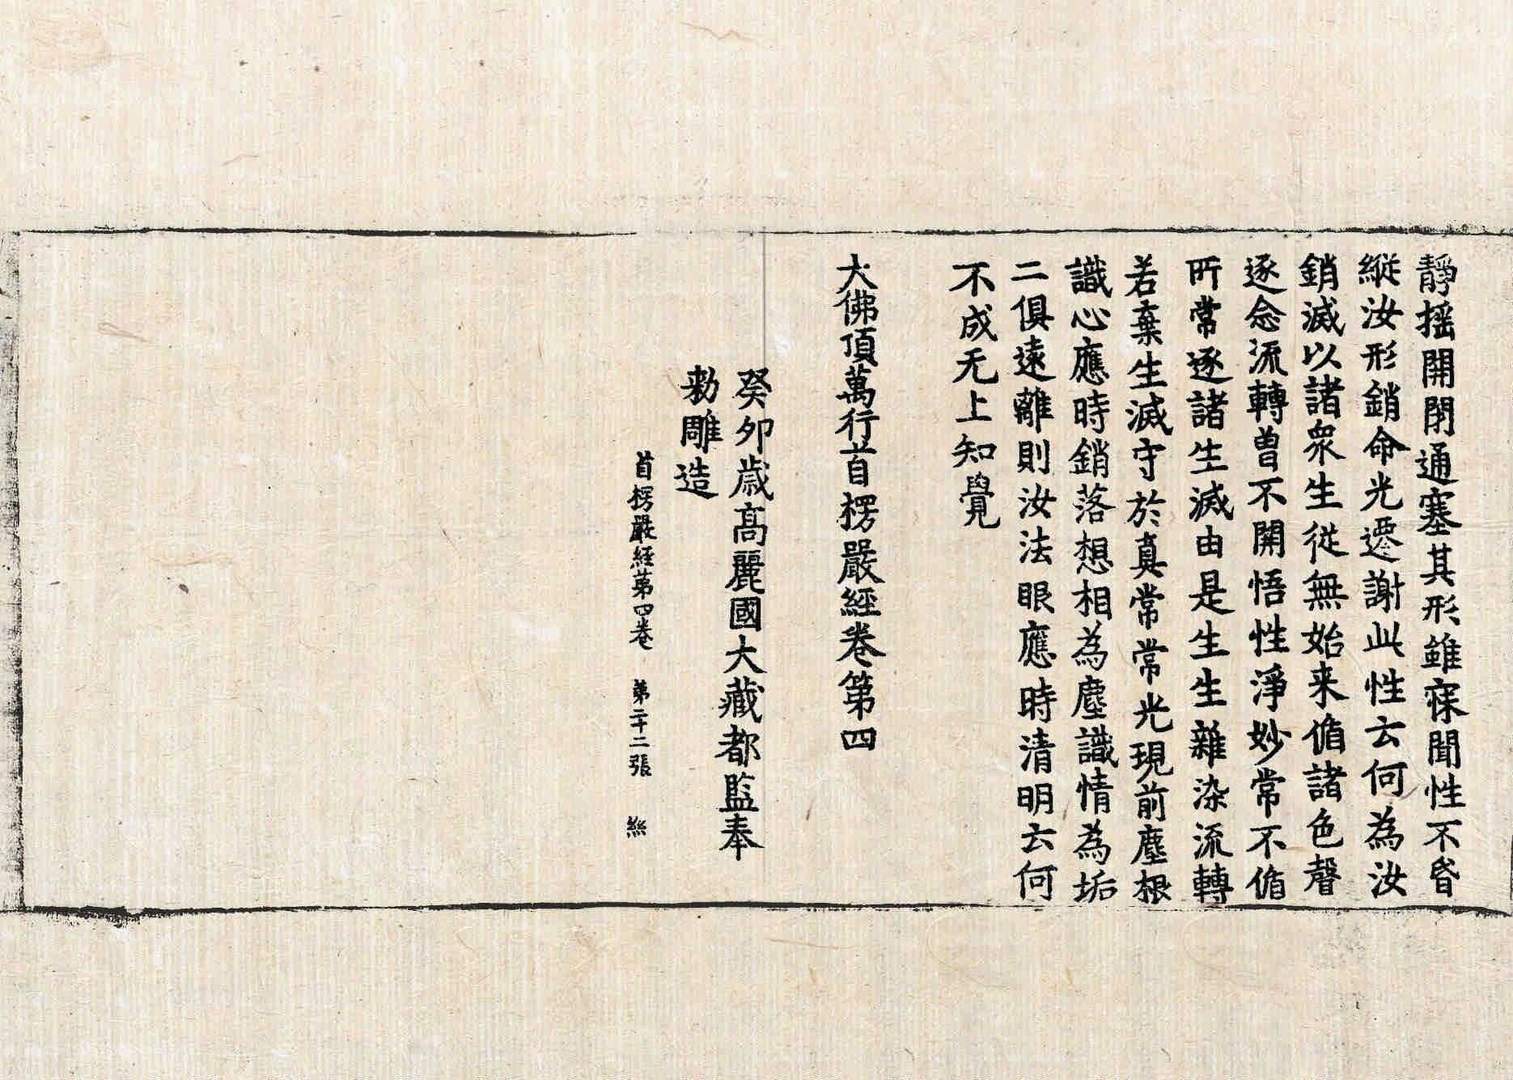 靜揺開閉通塞其形雖寐聞性不昏
縱汝形銷命光遷謝此性云何為汝
銷滅以諸衆生從無始来循諸色聲
逐念流轉曽不開悟性淨妙常不循
所常逐諸生滅由是生生雜染流轉
若棄生滅守於真常常光現前塵根
識心應時銷落想相為塵識情為垢
二俱遠離則汝法眼應時清明云何
不成无上知覺
大佛頂萬行首楞嚴經卷第四
癸卯歳高麗國大藏都監奉
勅雕造
首楞嚴經第四卷 第二十二張 絲